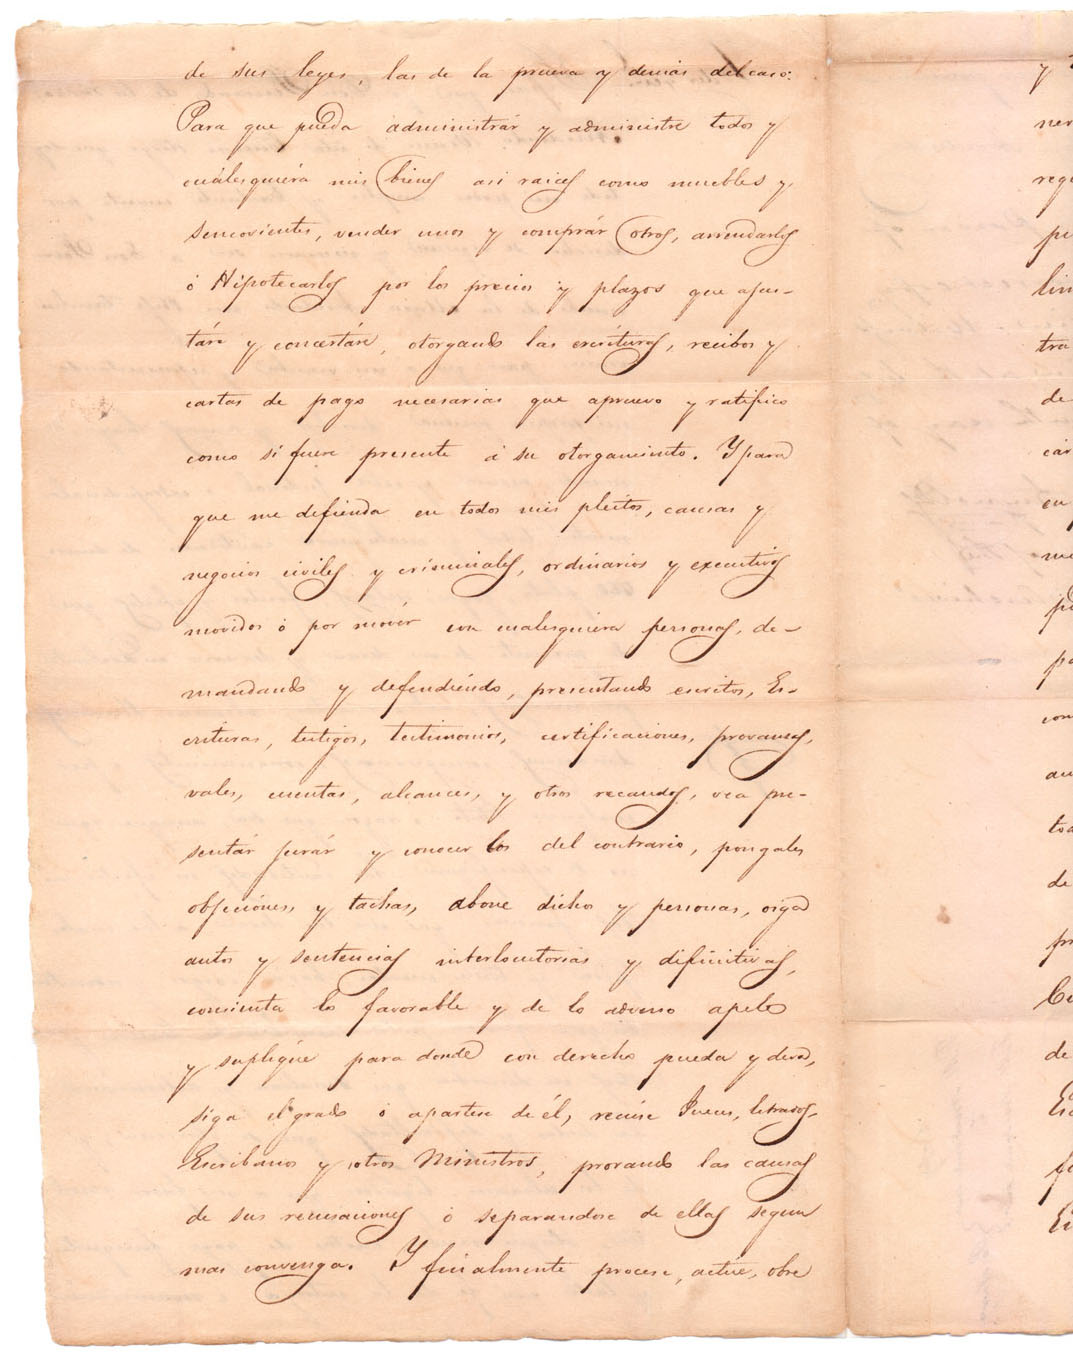 de sus leyes, las de la prueva y demas del caso:
Para que pueda administrár y administre todos y
cuálesquiéra mis bienes asi raices como muebles y
semovientes, vender unos y comprár otros, arrendarlos
ó Hipotecarlos por los precios y plazos que ajus-
táre y concertáre, otorgando las escrituras, recibos y
cartas de pago necesarias que apruevo y ratifico
como si fuere presente á su otorgamiento. Y para
que me defienda en todos mis pleitos, causas y
negocios civiles y criminales, ordinarios y executivos
movidos ó por móvér con cualesquiera personas, de-
mandando y defendiéndo, presentando escritos, Es-
crituras, testigos, testimonios, certificaciones, provanzas,
vales, cuentas, alcances, y otros recaudos, vea pre-
sentár jurár y conocer los del contrario, pongales
objeciónes, y tachas, abone dichos y personas, oiga
autos y sentencias interlocutorias y difinitivas,
consienta lo favorable y de lo adverso apele
y suplique para donde con derecho pueda y deva,
siga el grado ó apartese de él, recúse Jueces, letrados,
Escribanos y otros Ministros, provando las causas
de sus recusaciones ó separandose de ellas segun
mas convenga. Y finalmente procese, actue, obre
y
ner
regu
pu
lin
tra
de
cár
en
me
pa
con
au
tod
de
pr
de